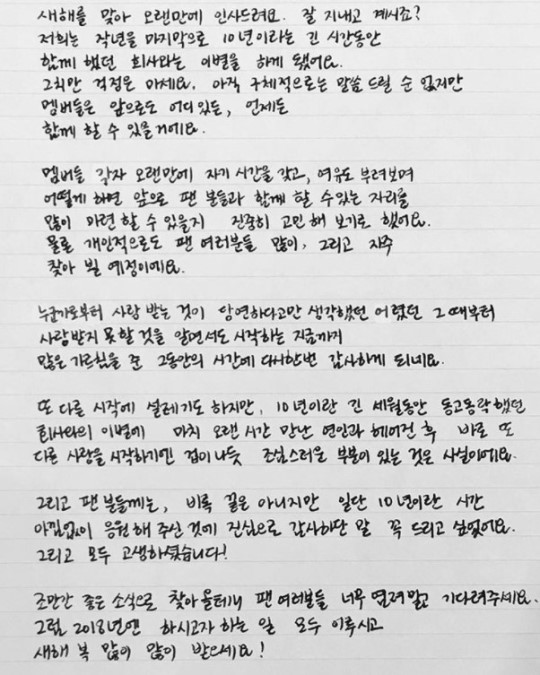 새해를 맞아 오랜만에 인사드려요. 잘 지내고 계시죠?
저희는 작년을 마지막으로 10년이라는 긴 시간동안
함께 했던 회사와는 이별을 하게 됐어요.
그치만 걱정은 마세요. 아직 구체적으로는 말씀 드릴 순 없지만
멤버들은 앞으로도 어디 있든, 언제든
함께 할 수 있을거에요.
멤버들 각자 오랜만에 자기 시간을 갖고, 여유도 부려보며
어떻게 하면 앞으로 팬 분들과 함께 할 수 있는 자리를
많이 마련 할 수 있을지 진중히 고민 해 보기로 했어요.
물론 개인적으로도 팬 여러분들 많이, 그리고 자주
찾아 뵐 예정이에요.
누군가로부터 사랑 받는 것이 당연하다고만 생각했던 어렸던 그 때부터
사랑받지 못할 것을 알면서도 시작하는 지금까지
많은 가르침을 준 그동안의 시간에 다시한번 감사하게 되네요.
또 다른 시작에 설레기도 하지만, 10년이란 긴 세월동안 동고동락 했던
회사와의 이별에 마치 오랜 시간 만난 연인과 헤어진 후 바로 또
다른 사랑을 시작하기엔 겁이 나듯 조심스러운 부분이 있는 것은 사실이에요.
그리고 팬 분들께는, 비록 끝은 아니지만 일단 10년이란 시간
아낌없이 응원 해 주신 것에 진심으로 감사하단 말 꼭 드리고 싶었어요.
그리고 모두 고생하셨습니다!
조만간 좋은 소식으로 찾아 올테니 팬 여러분들 너무 염려말고 기다려주세요.
그럼 2018년엔 하시고자 하는 일 모두 이루시고
새해 복 많이 많이 받으세요!